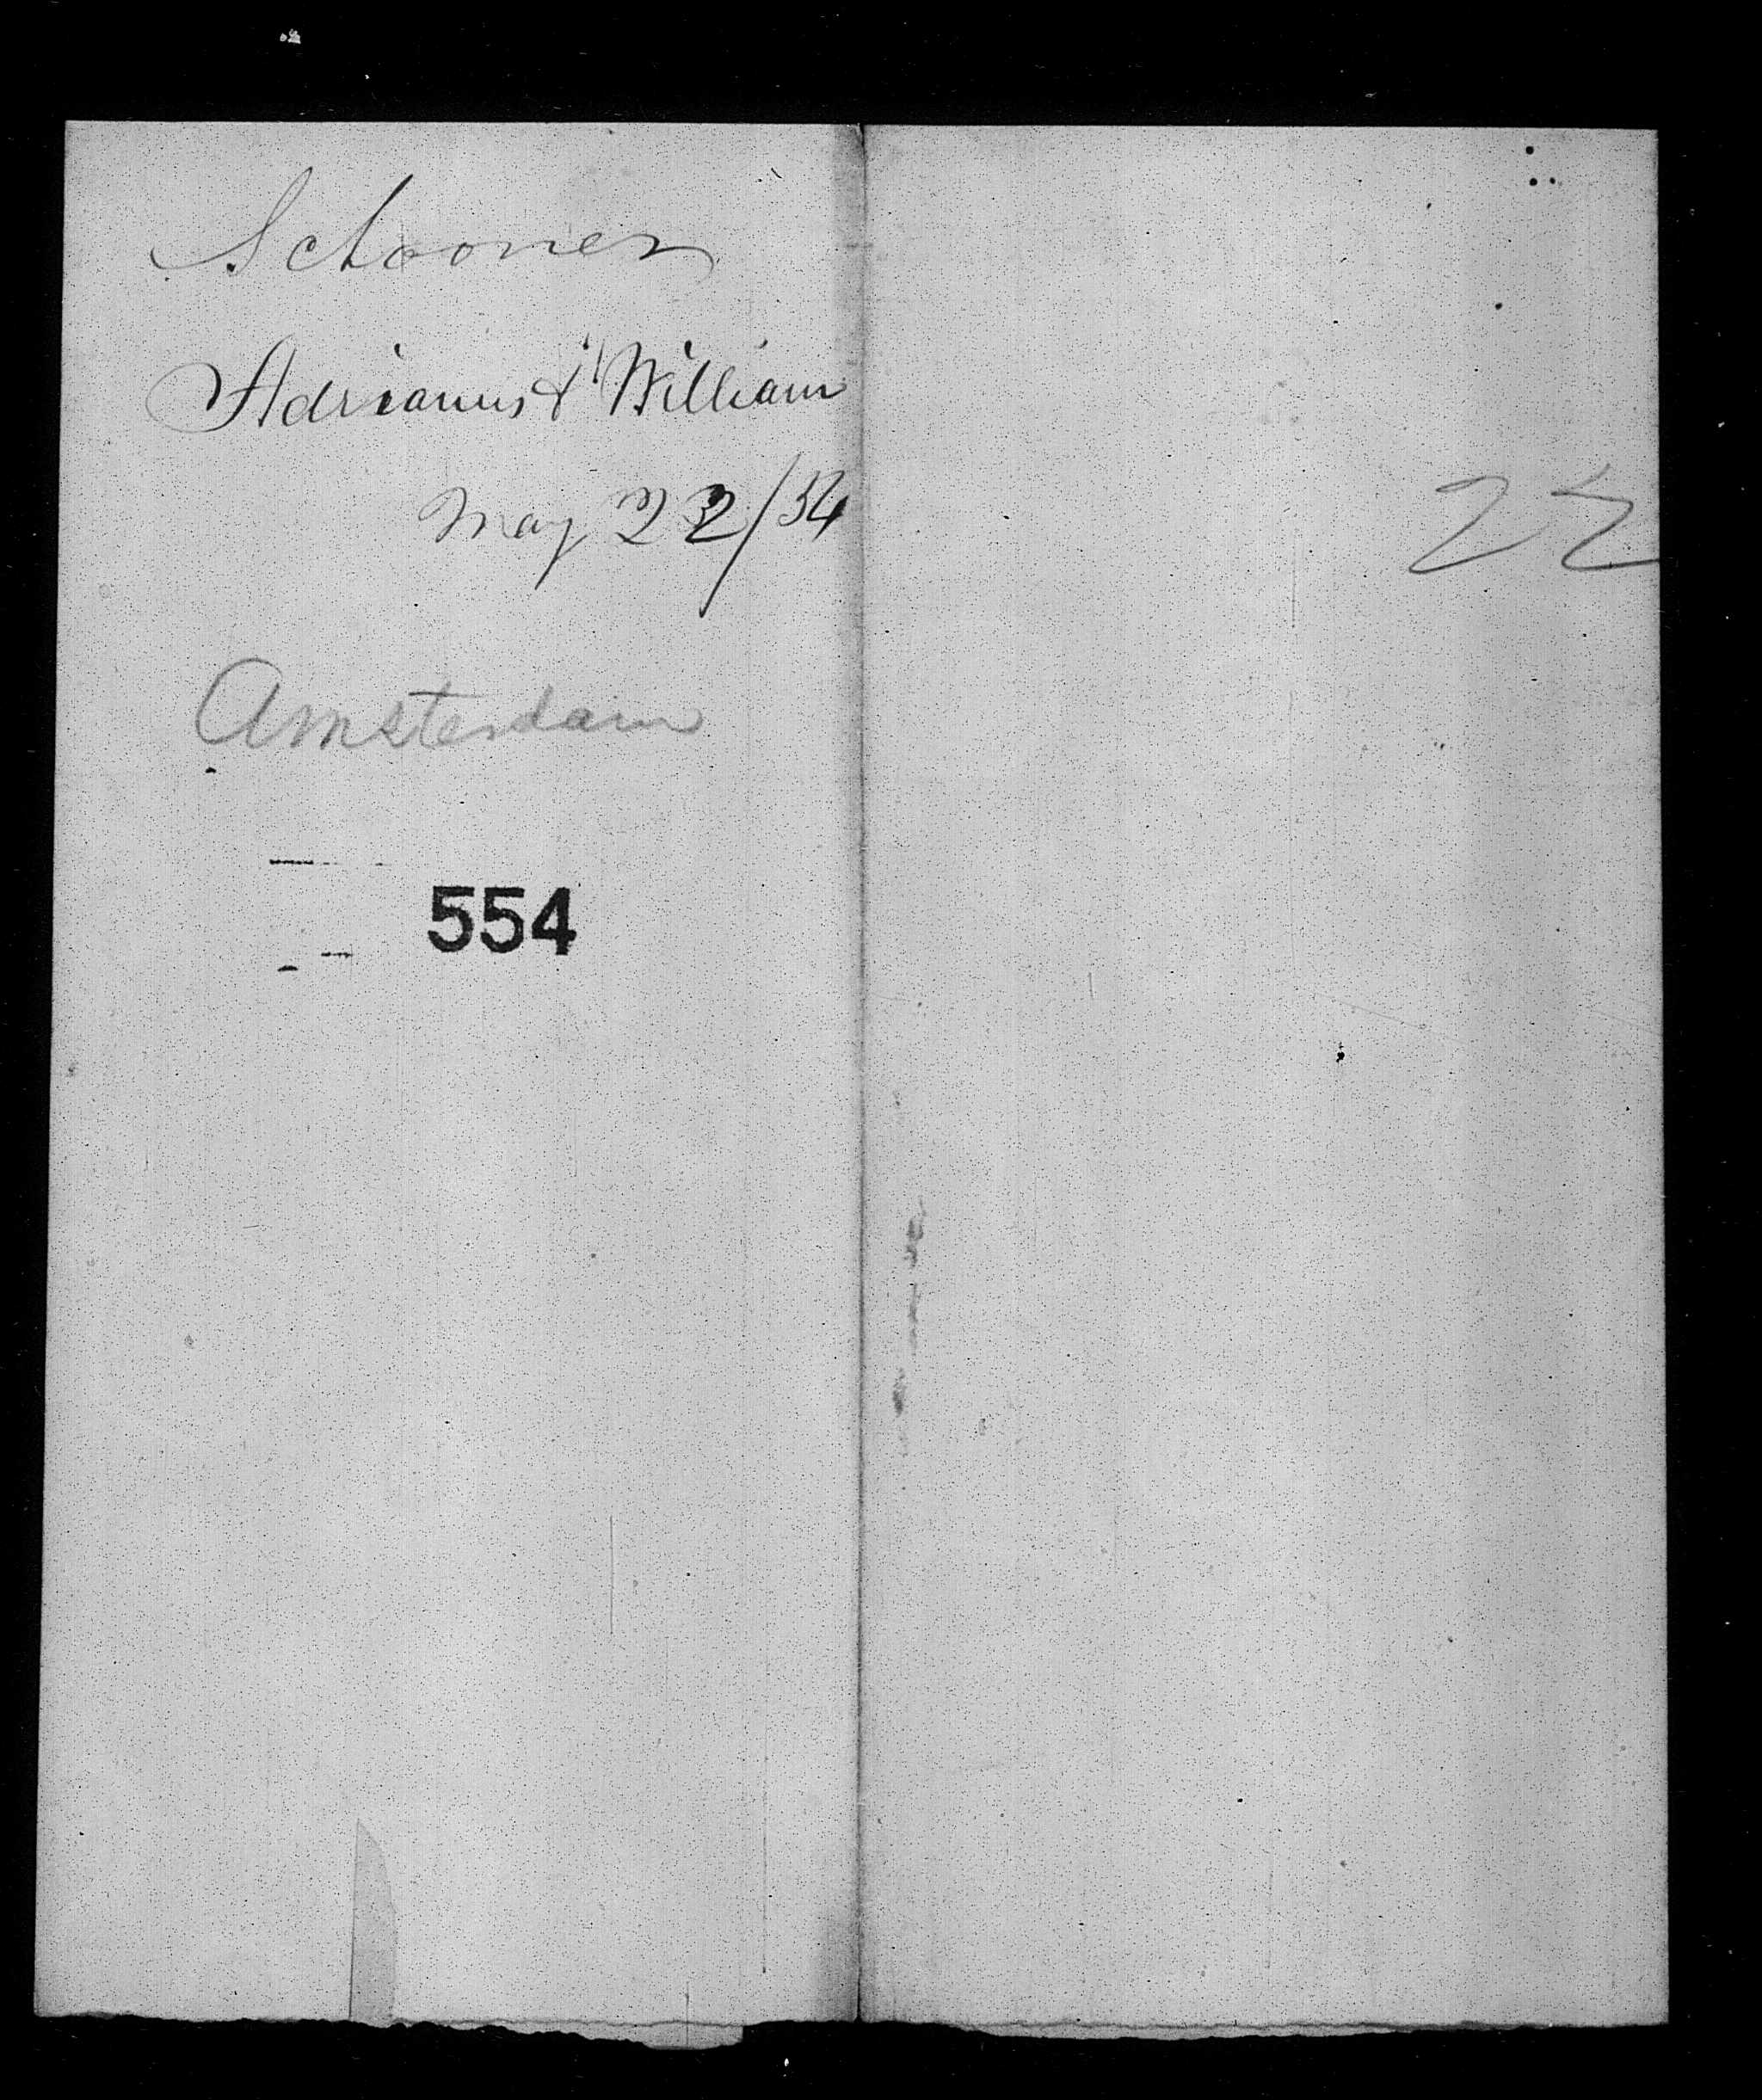 Schooner
Adrianus & William
May 22/54
Amsterdam
554
22